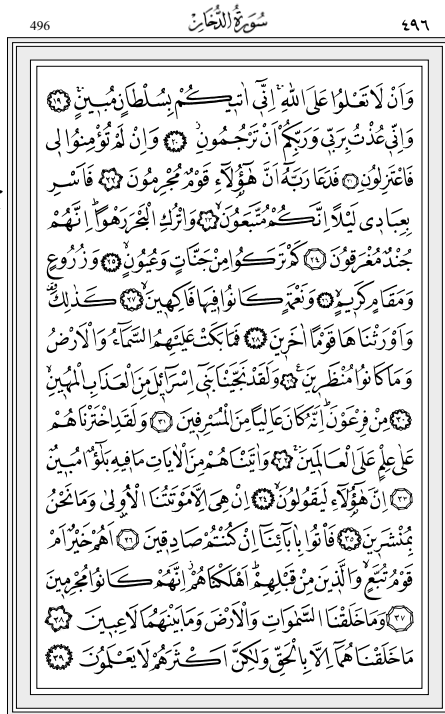 496 سُورَةُ الدُّخَانِ ٤٩٦
وَاَنْ لَا تَعْلُوا عَلَى اللّٰهِۚ اِنّ۪ٓي اٰت۪يكُمْ بِسُلْطَانٍ مُب۪ينٍۚ ﴿١٩﴾
وَاِنّ۪ي عُذْتُ بِرَبّ۪ي وَرَبِّكُمْ اَنْ تَرْجُمُونِۘ ﴿٢٠﴾ وَاِنْ لَمْ تُؤْمِنُوا ل۪ي
فَاعْتَزِلُونِ ﴿٢١﴾ فَدَعَا رَبَّهُٓ اَنَّ هٰٓؤُ۬لَٓاءِ قَوْمٌ مُجْرِمُونَ ﴿٢٢﴾ فَاَسْرِ
بِعِبَاد۪ي لَيْلًا اِنَّكُمْ مُتَّبَعُونَۙ ﴿٢٣﴾ وَاتْرُكِ الْبَحْرَ رَهْوًاۜ اِنَّهُمْ
جُنْدٌ مُغْرَقُونَ ﴿٢٤﴾ كَمْ تَرَكُوا مِنْ جَنَّاتٍ وَعُيُونٍۙ ﴿٢٥﴾ وَزُرُوعٍ
وَمَقَامٍ كَر۪يمٍۙ ﴿٢٦﴾ وَنَعْمَةٍ كَانُوا ف۪يهَا فَاكِه۪ينَۙ ﴿٢٧﴾ كَذٰلِكَ۠
وَاَوْرَثْنَاهَا قَوْمًا اٰخَر۪ينَ ﴿٢٨﴾ فَمَا بَكَتْ عَلَيْهِمُ السَّمَٓاءُ وَالْاَرْضُ
وَمَا كَانُوا مُنْظَر۪ينَ۟ ﴿٢٩﴾ وَلَقَدْ نَجَّيْنَا بَن۪ٓي اِسْرَٓائ۪لَ مِنَ الْعَذَابِ الْمُه۪ينِۙ
﴿٣٠﴾ مِنْ فِرْعَوْنَۜ اِنَّهُ كَانَ عَالِيًا مِنَ الْمُسْرِف۪ينَ ﴿٣١﴾ وَلَقَدِ اخْتَرْنَاهُمْ
عَلٰى عِلْمٍ عَلَى الْعَالَم۪ينَۚ ﴿٣٢﴾ وَاٰتَيْنَاهُمْ مِنَ الْاٰيَاتِ مَا ف۪يهِ بَلٰٓؤٌ۬ا مُب۪ينٌ
﴿٣٣﴾ اِنَّ هٰٓؤُ۬لَٓاءِ لَيَقُولُونَۙ ﴿٣٤﴾ اِنْ هِيَ اِلَّا مَوْتَتُنَا الْاُو۫لٰى وَمَا نَحْنُ
بِمُنْشَر۪ينَ ﴿٣٥﴾ فَأْتُوا بِاٰبَٓائِنَٓا اِنْ كُنْتُمْ صَادِق۪ينَ ﴿٣٦﴾ اَهُمْ خَيْرٌ اَمْ
قَوْمُ تُبَّعٍۙ وَالَّذ۪ينَ مِنْ قَبْلِهِمْۜ اَهْلَكْنَاهُمْۘ اِنَّهُمْ كَانُوا مُجْرِم۪ينَ
﴿٣٧﴾ وَمَا خَلَقْنَا السَّمٰوَاتِ وَالْاَرْضَ وَمَا بَيْنَهُمَا لَاعِب۪ينَ ﴿٣٨﴾
مَا خَلَقْنَاهُمَٓا اِلَّا بِالْحَقِّ وَلٰكِنَّ اَكْثَرَهُمْ لَا يَعْلَمُونَ ﴿٣٩﴾